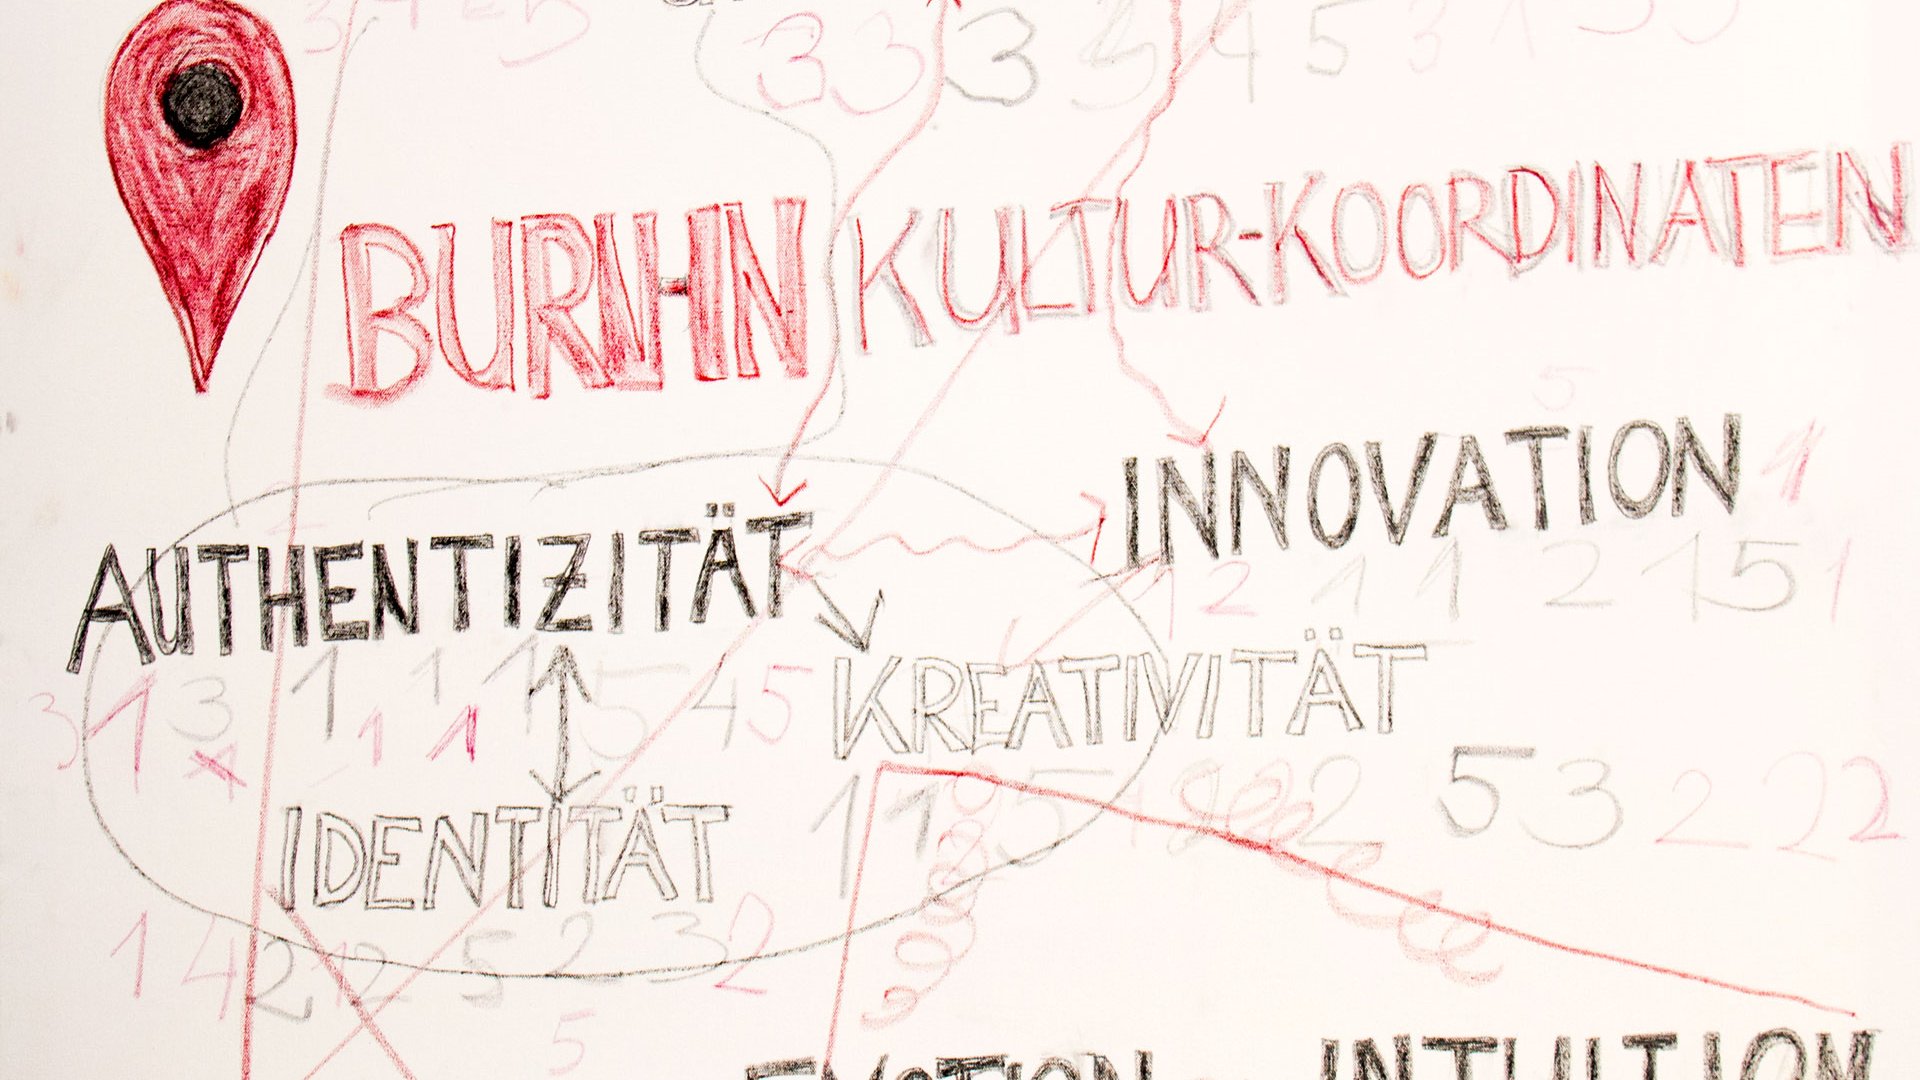 3 3 3 3 4 5 3 1
BURNHN KULTUR-KOORDINATEN
5
INNOVATION 1
AUTHENTIZITÄT
1 2 1 1 2 1 5 1
KREATIVITÄT
3 1 3 1 1 1 5 4 5
1 1
1 1 5 1 2 5 3 2 2 2
IDENTITÄT
1 4 2 12 5 2 3 2
5
EMOTION INTUITION